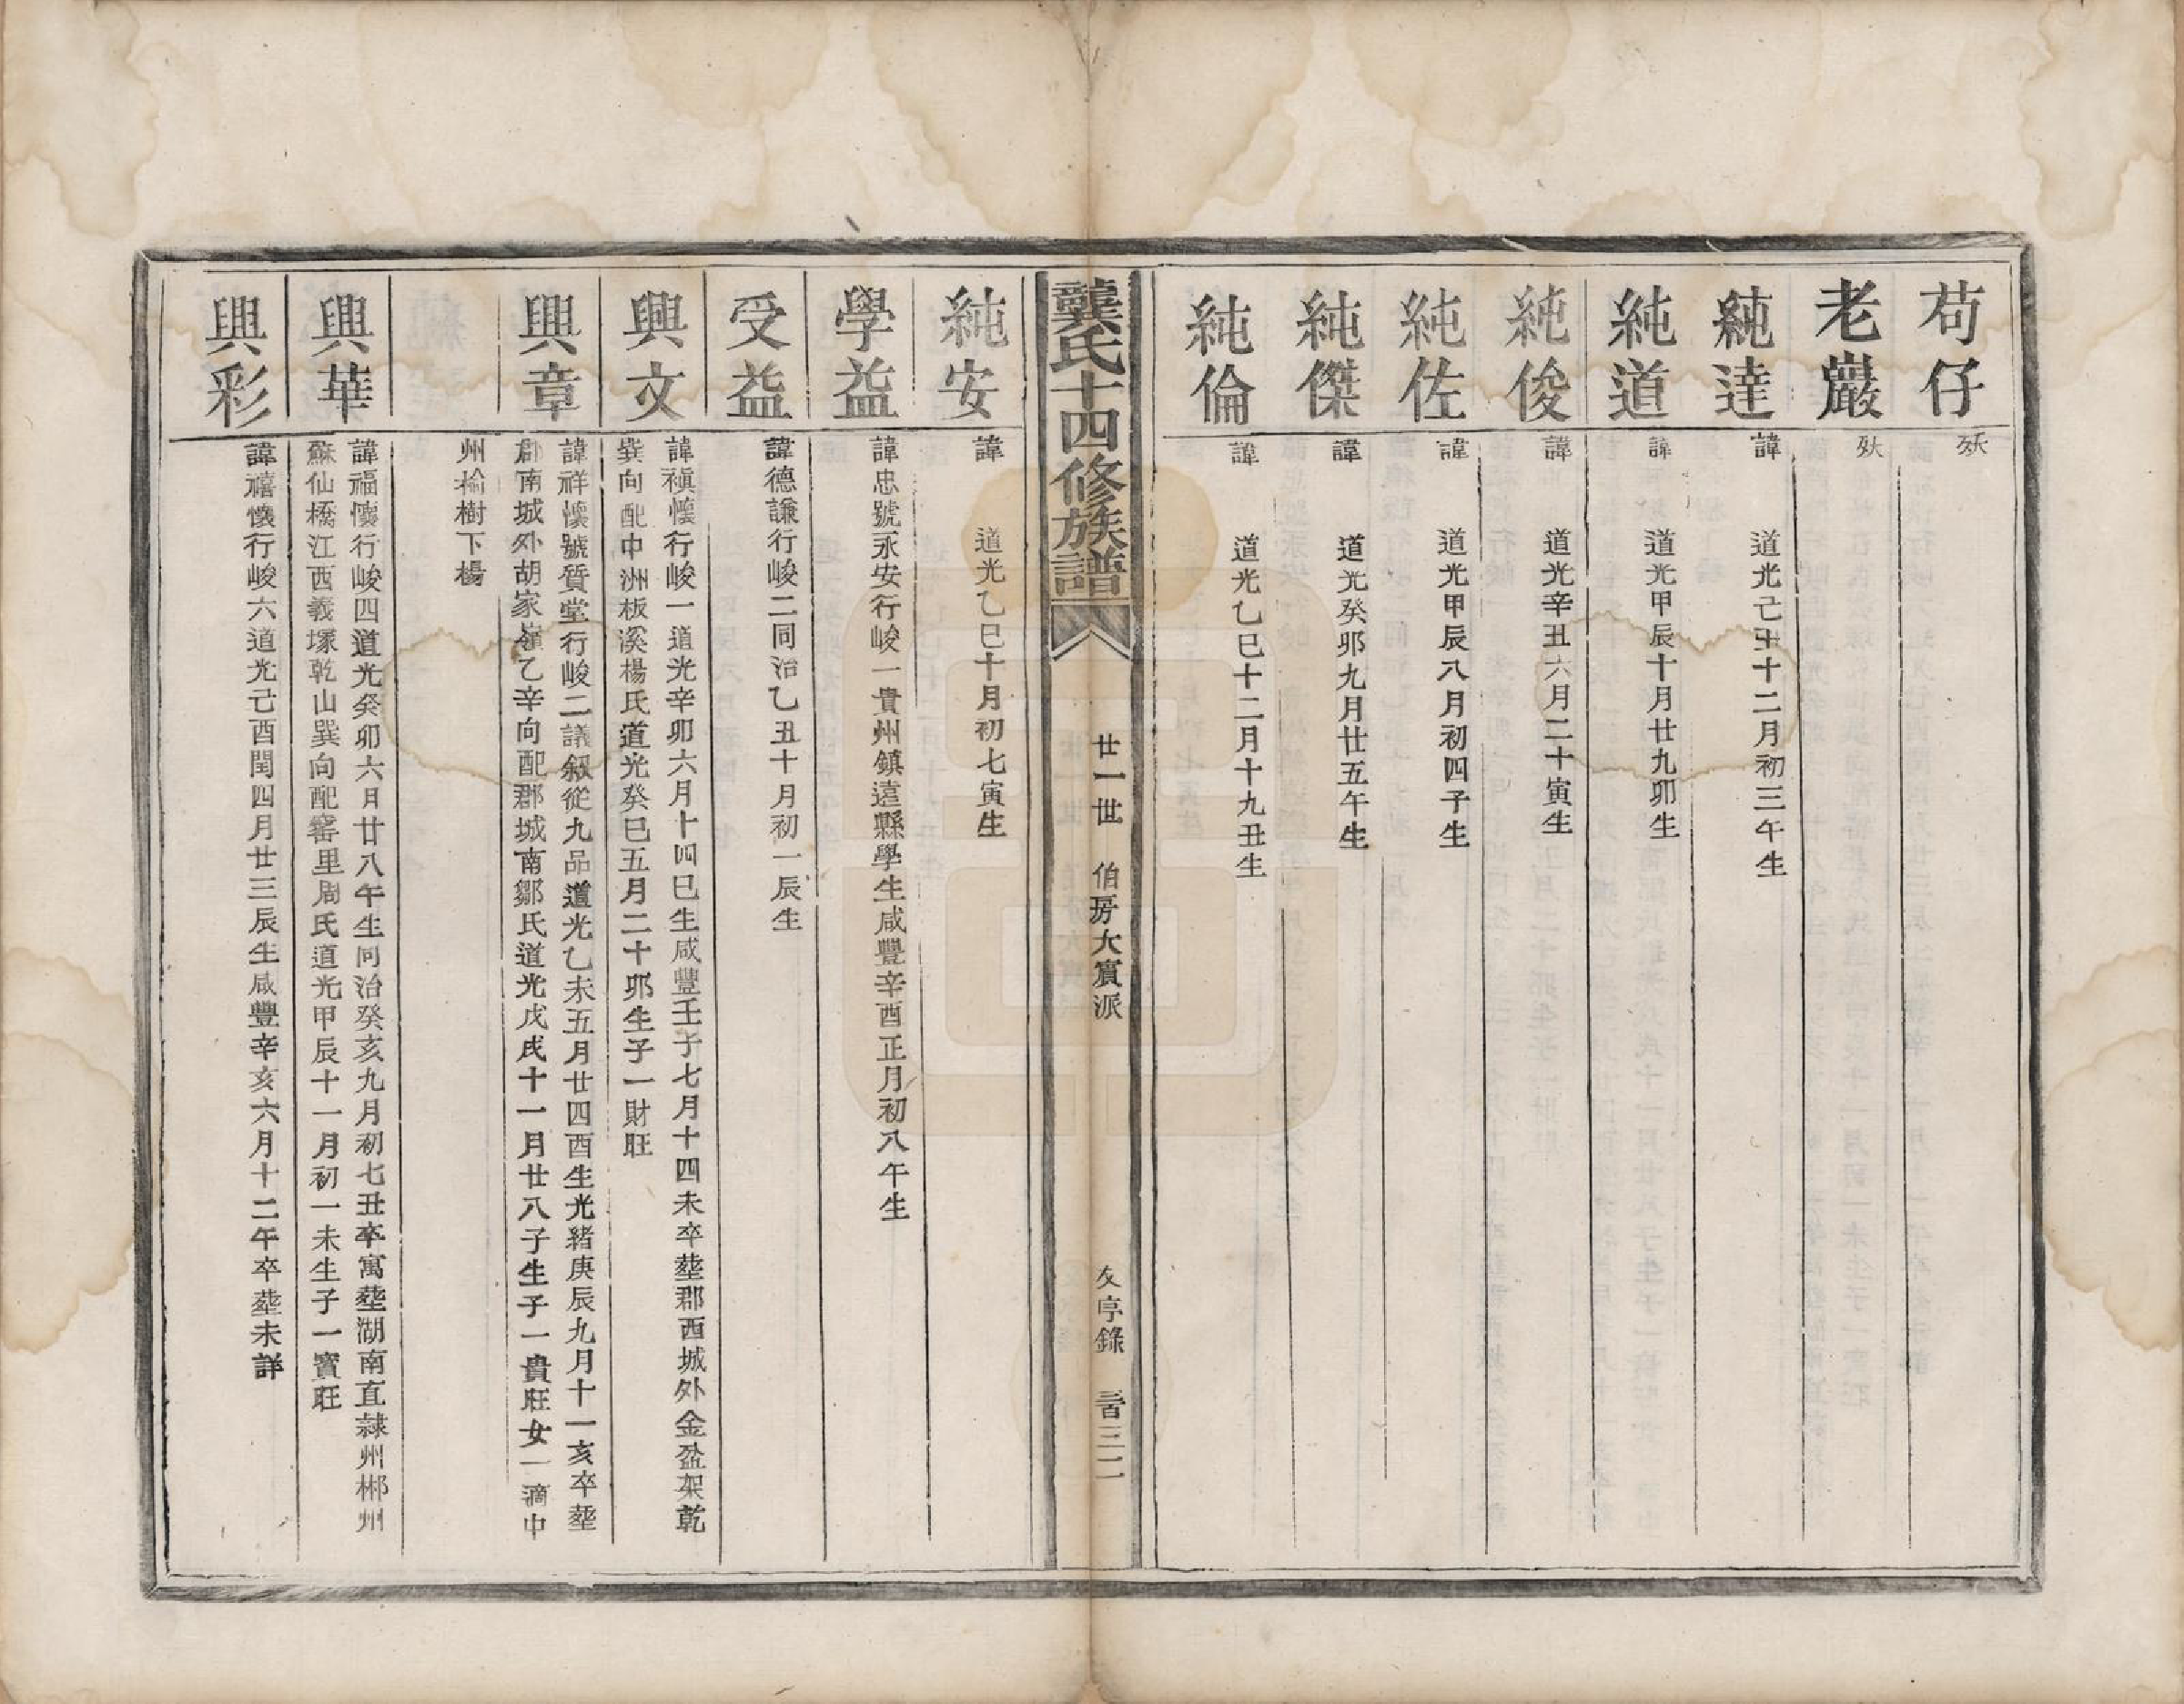 苟仔
殀
老巖
殀
純達
諱 道光己丑十二月初三午生
純道
諱 道光甲辰十月廿九卯生
純俊
諱 道光辛丑六月二十寅生
純佐
諱 道光甲辰八月初四子生
純傑
諱 道光癸卯九月廿五午生
純倫
諱 道光乙巳十二月十九丑生
龔氏十四修族譜 廿一世 伯房大實派 友亭錄 三百三二
純安
諱 道光乙巳十月初七寅生
學益
諱忠號永安行峻一貴州鎮遠縣學生咸豐辛酉正月初八午生
受益
諱德謙行峻二同治乙丑十月初一辰生
興文
諱禛懷行峻一道光辛卯六月十四巳生咸豐壬子七月十四未卒塟郡西城外金盆架乾
巽向配中洲板溪楊氏道光癸巳五月二十卯生子一財旺
興章
諱祥懷號質堂行峻二議敘從九品道光乙未五月廿四酉生光緒庚辰九月十一亥卒塟
郡南城外胡家嶺乙辛向配郡城南鄒氏道光戊戌十一月廿八子生子一貴旺女一滴中
州掄樹下楊
興華
諱福懷行峻四道光癸卯六月廿八午生同治癸亥九月初七丑卒寓塟湖南直隸州郴州
蘇仙橋江西義塚乾山巽向配窰里周氏道光甲辰十一月初一未生子一寳旺
興彩
諱禧懷行峻六道光己酉閏四月廿三辰生咸豐辛亥六月十二午卒塟未詳